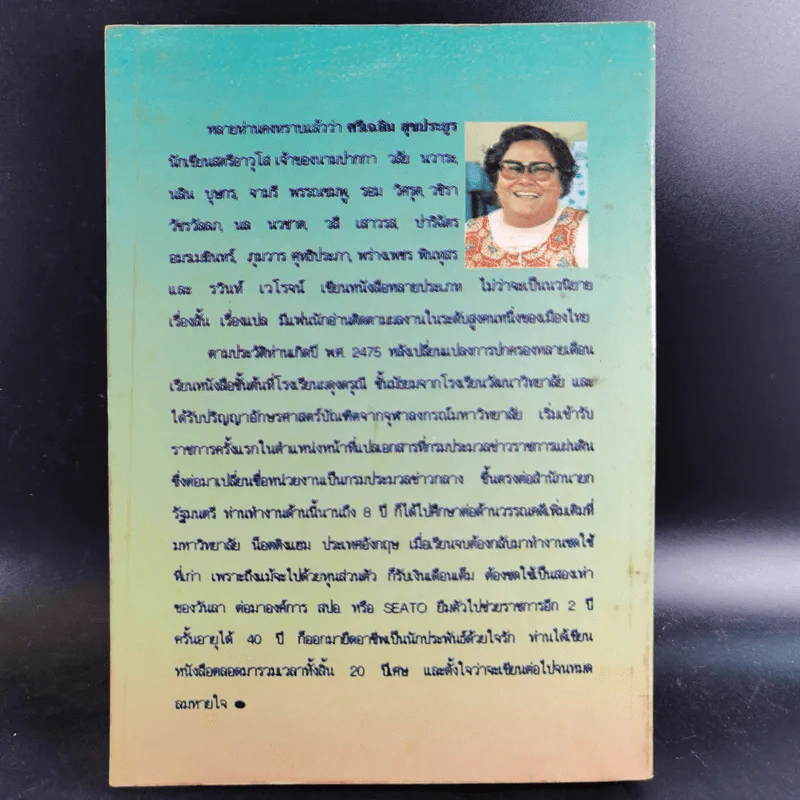 หลายท่านคงทราบแล้วว่า ศรีเฉลิม สุขประยูร
นักเขียนสตรีอาวุโส เจ้าของนามปากกา วลัย นวาระ,
นลิน บุษกร, จามรี พรรณชมพู, รอม วิศรุต, วชิรา
วัชรวัลลภ, นล นวชาต, วลี เสาวรส, ปาริฉัตร
อมรเมธินทร์, ภุมวาร ศุทธิประภา, พร่างเพชร พินทุสร
และ รวินท์ เวโรจน์ เขียนหนังสือหลายประเภท ไม่ว่าจะเป็นนวนิยาย
เรื่องสั้น เรื่องแปล มีแฟนนักอ่านติดตามผลงานในระดับสูงคนหนึ่งของเมืองไทย
ตามประวัติท่านเกิดปี พ.ศ. 2475 หลังเปลี่ยนแปลงการปกครองหลายเดือน
เรียนหนังสือชั้นต้นที่โรงเรียนผดุงดรุณี ชั้นมัธยมจากโรงเรียนวัฒนาวิทยาลัย และ
ได้รับปริญญาอักษรศาสตร์บัณฑิตจากจุฬาลงกรณ์มหาวิทยาลัย เริ่มเข้ารับ
ราชการครั้งแรกในตำแหน่งหน้าที่แปลเอกสารที่กรมประมวลข่าวราชการแผ่นดิน
ซึ่งต่อมาเปลี่ยนชื่อหน่วยงานเป็นกรมประมวลข่าวกลาง ขึ้นตรงต่อสำนักนายก
รัฐมนตรี ท่านทำงานด้านนี้นานถึง 8 ปี ก็ได้ไปศึกษาต่อด้านวรรณคดีเพิ่มเติมที่
มหาวิทยาลัย น็อตติงแฮม ประเทศอังกฤษ เมื่อเรียนจบต้องกลับมาทำงานชดใช้
ที่เก่า เพราะถึงแม้จะไปด้วยทุนส่วนตัว ก็รับเงินเดือนเต็ม ต้องชดใช้เป็นสองเท่า
ของวันลา ต่อมาองค์การ สปอ. หรือ SEATO ยืมตัวไปช่วยราชการอีก 2 ปี
ครั้นอายุได้ 40 ปี ก็ออกมายึดอาชีพเป็นนักประพันธ์ด้วยใจรัก ท่านได้เขียน
หนังสือตลอดมารวมเวลาทั้งสิ้น 20 ปีเศษ และตั้งใจว่าจะเขียนต่อไปจนหมด
ลมหายใจ